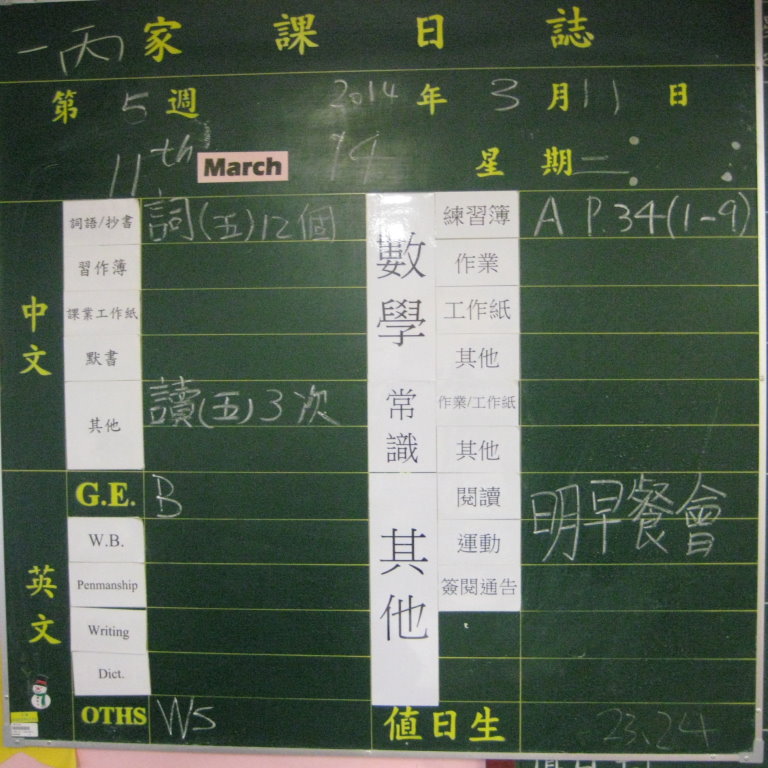 一丙 家課日誌
第 5 週 2014 年 3 月 11 日
11th March 14 星期二
中文
詞語/抄書 詞(五)12個
習作簿
課業工作紙
默書
其他 讀(五)3次
英文
G.E. B
W.B.
Penmanship
Writing
Dict.
OTHS WS
數學
練習簿 A P.34(1-9)
作業
工作紙
其他
常識
作業/工作紙
其他
其他
閱讀
運動 明早餐會
簽閱通告
值日生 23、24